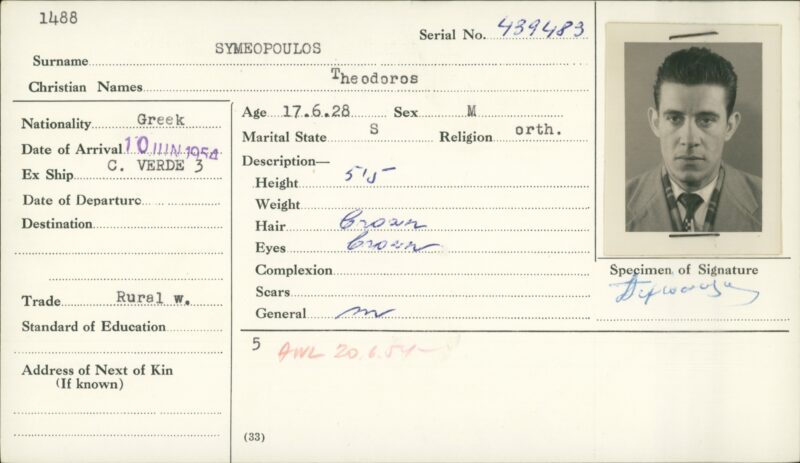 1488
Serial No. 439483
Surname SYMEOPOULOS
Christian Names Theodoros
Nationality Greek
Date of Arrival 10 JUN 1954
Ex Ship C. VERDE 3
Date of Departure
Destination
Trade Rural w.
Standard of Education
Address of Next of Kin
(If known)
Age 17.6.28 Sex M
Marital State S Religion orth.
Description—
Height 5'5
Weight
Hair Brown
Eyes Brown
Complexion
Scars
General
5 AWL 20.6.54
(33)
Specimen of Signature